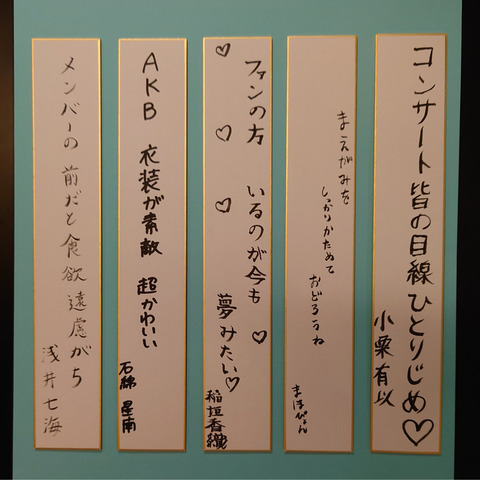 コンサート皆の目線ひとりじめ♡
小栗有以
まえがみを
しっかりかためて
おどるうね
まほぴょん
ファンの方
いるのが今も
夢みたい♡
稲垣香織
AKB 衣装が素敵 超かわいい
石綿星南
メンバーの前だと食欲遠慮がち
浅井七海